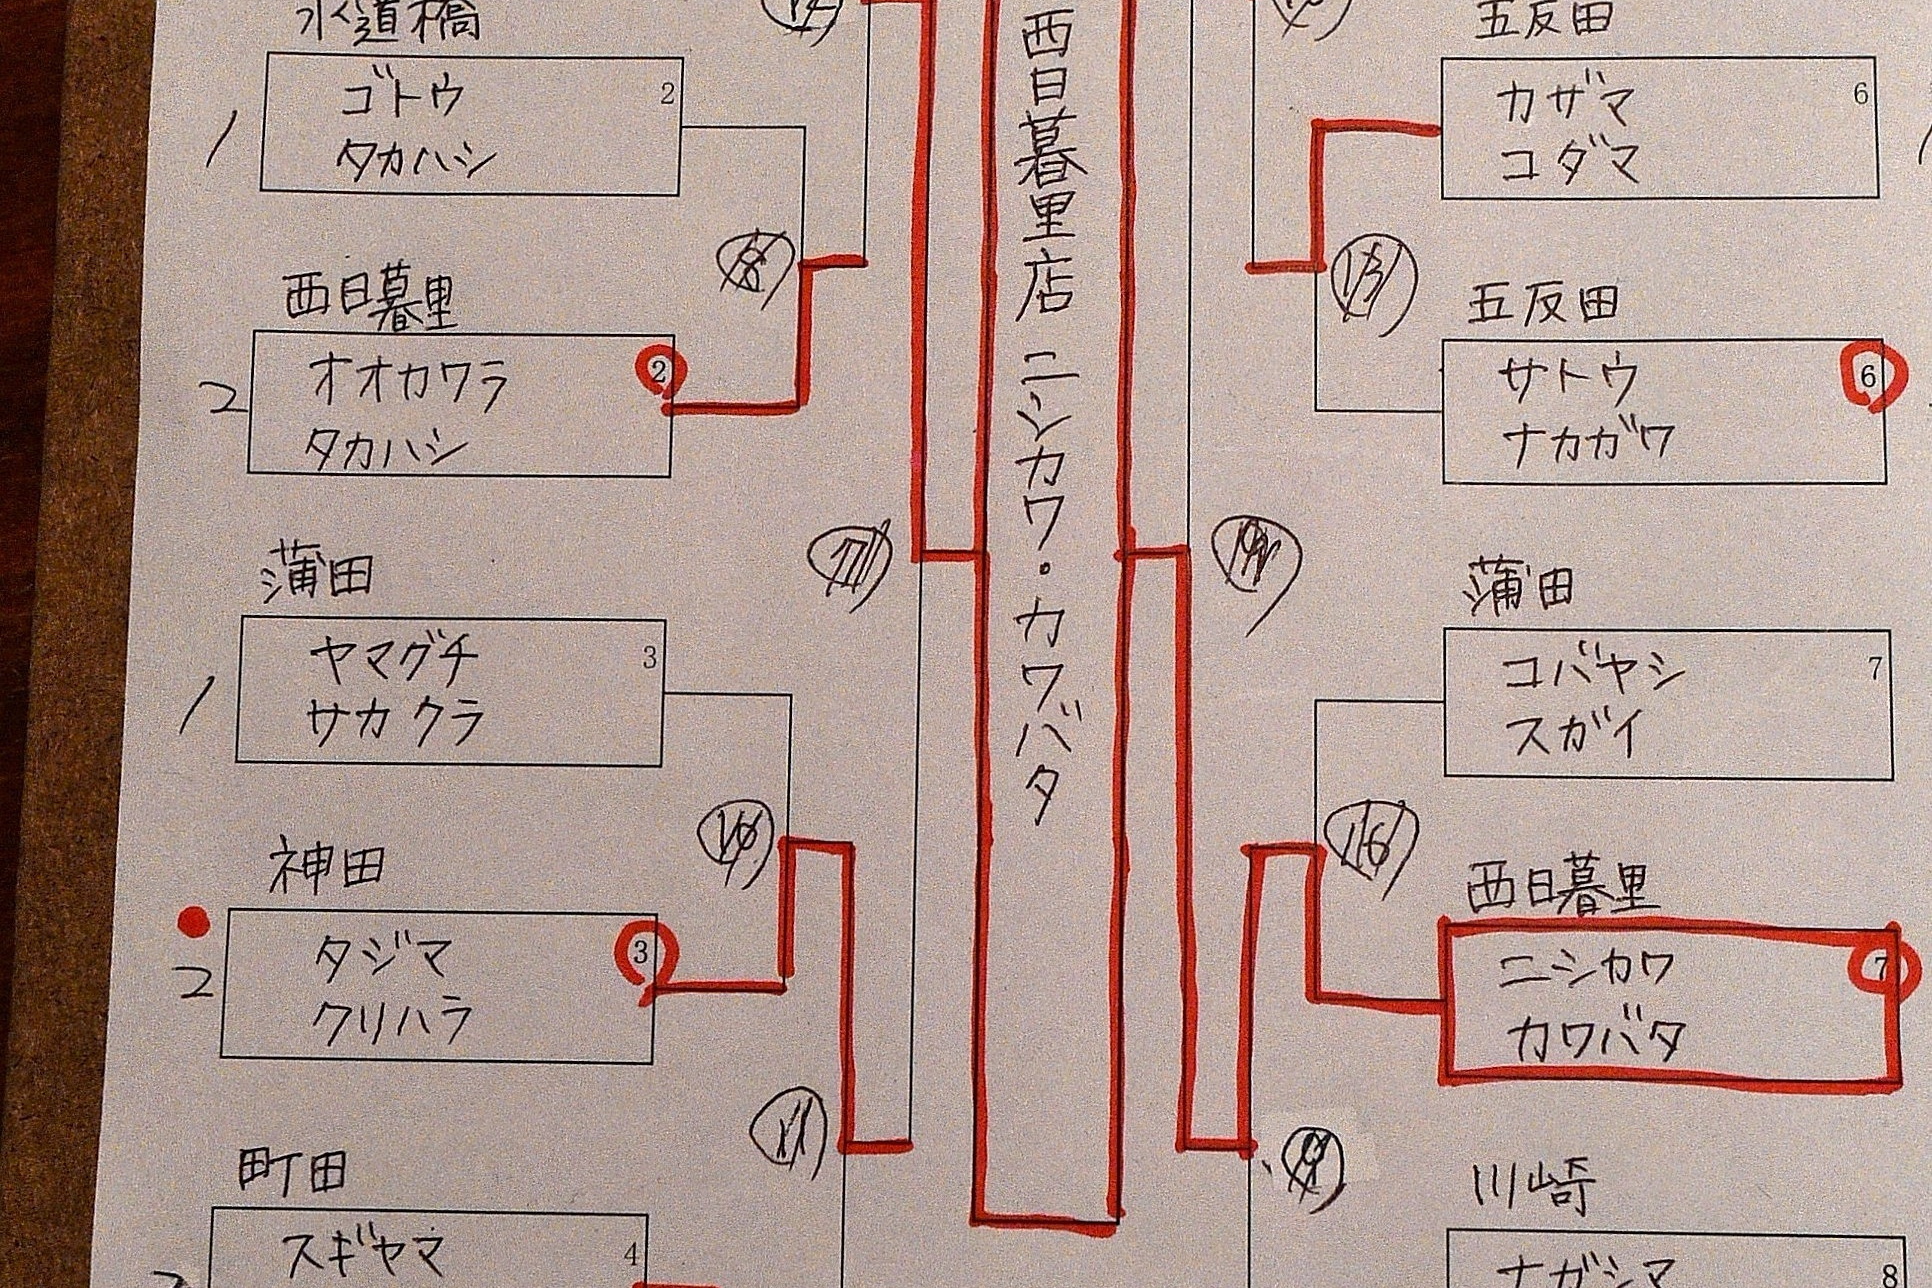 水道橋
ゴトウ 2
タカハシ
1
西日暮里
オオカワラ 2
タカハシ
2
蒲田
ヤマグチ 3
サカクラ
1
10
神田
タジマ 3
クリハラ
2
11
町田
スギヤマ 4
西日暮里店 ニシカワ・カワバタ
五反田
カザマ 6
コダマ
五反田
サトウ 6
ナカガワ
蒲田
コバヤシ 7
スガイ
16
西日暮里
ニシカワ 7
カワバタ
川崎
ナガシマ 8